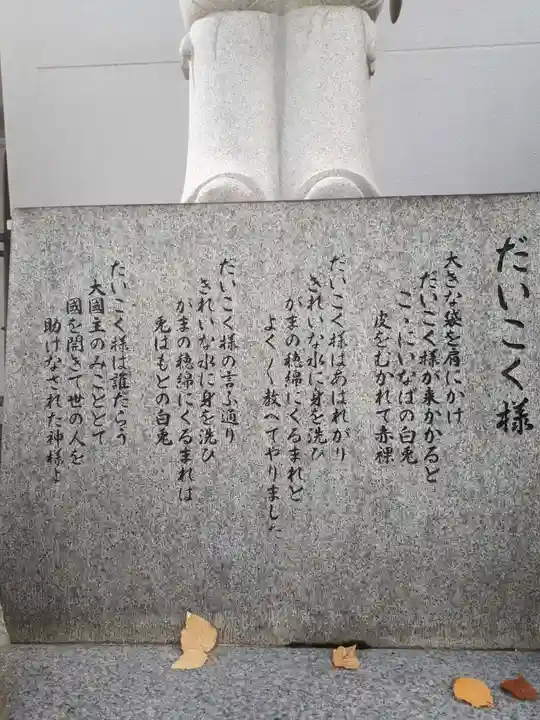 だいこく様
大きな袋を肩にかけ
だいこく様が来かかると
こゝにいなばの白兎
皮をむかれて赤裸
だいこく様はあはれがり
きれいな水に身を洗ひ
がまの穂綿にくるまれと
よく〳〵教へてやりました
だいこく様の言ふ通り
きれいな水に身を洗ひ
がまの穂綿にくるまれは
兎はもとの白兎
だいこく様は誰だらう
大國主のみことゝて
國を開きて世の人を
助けなされた神様よ